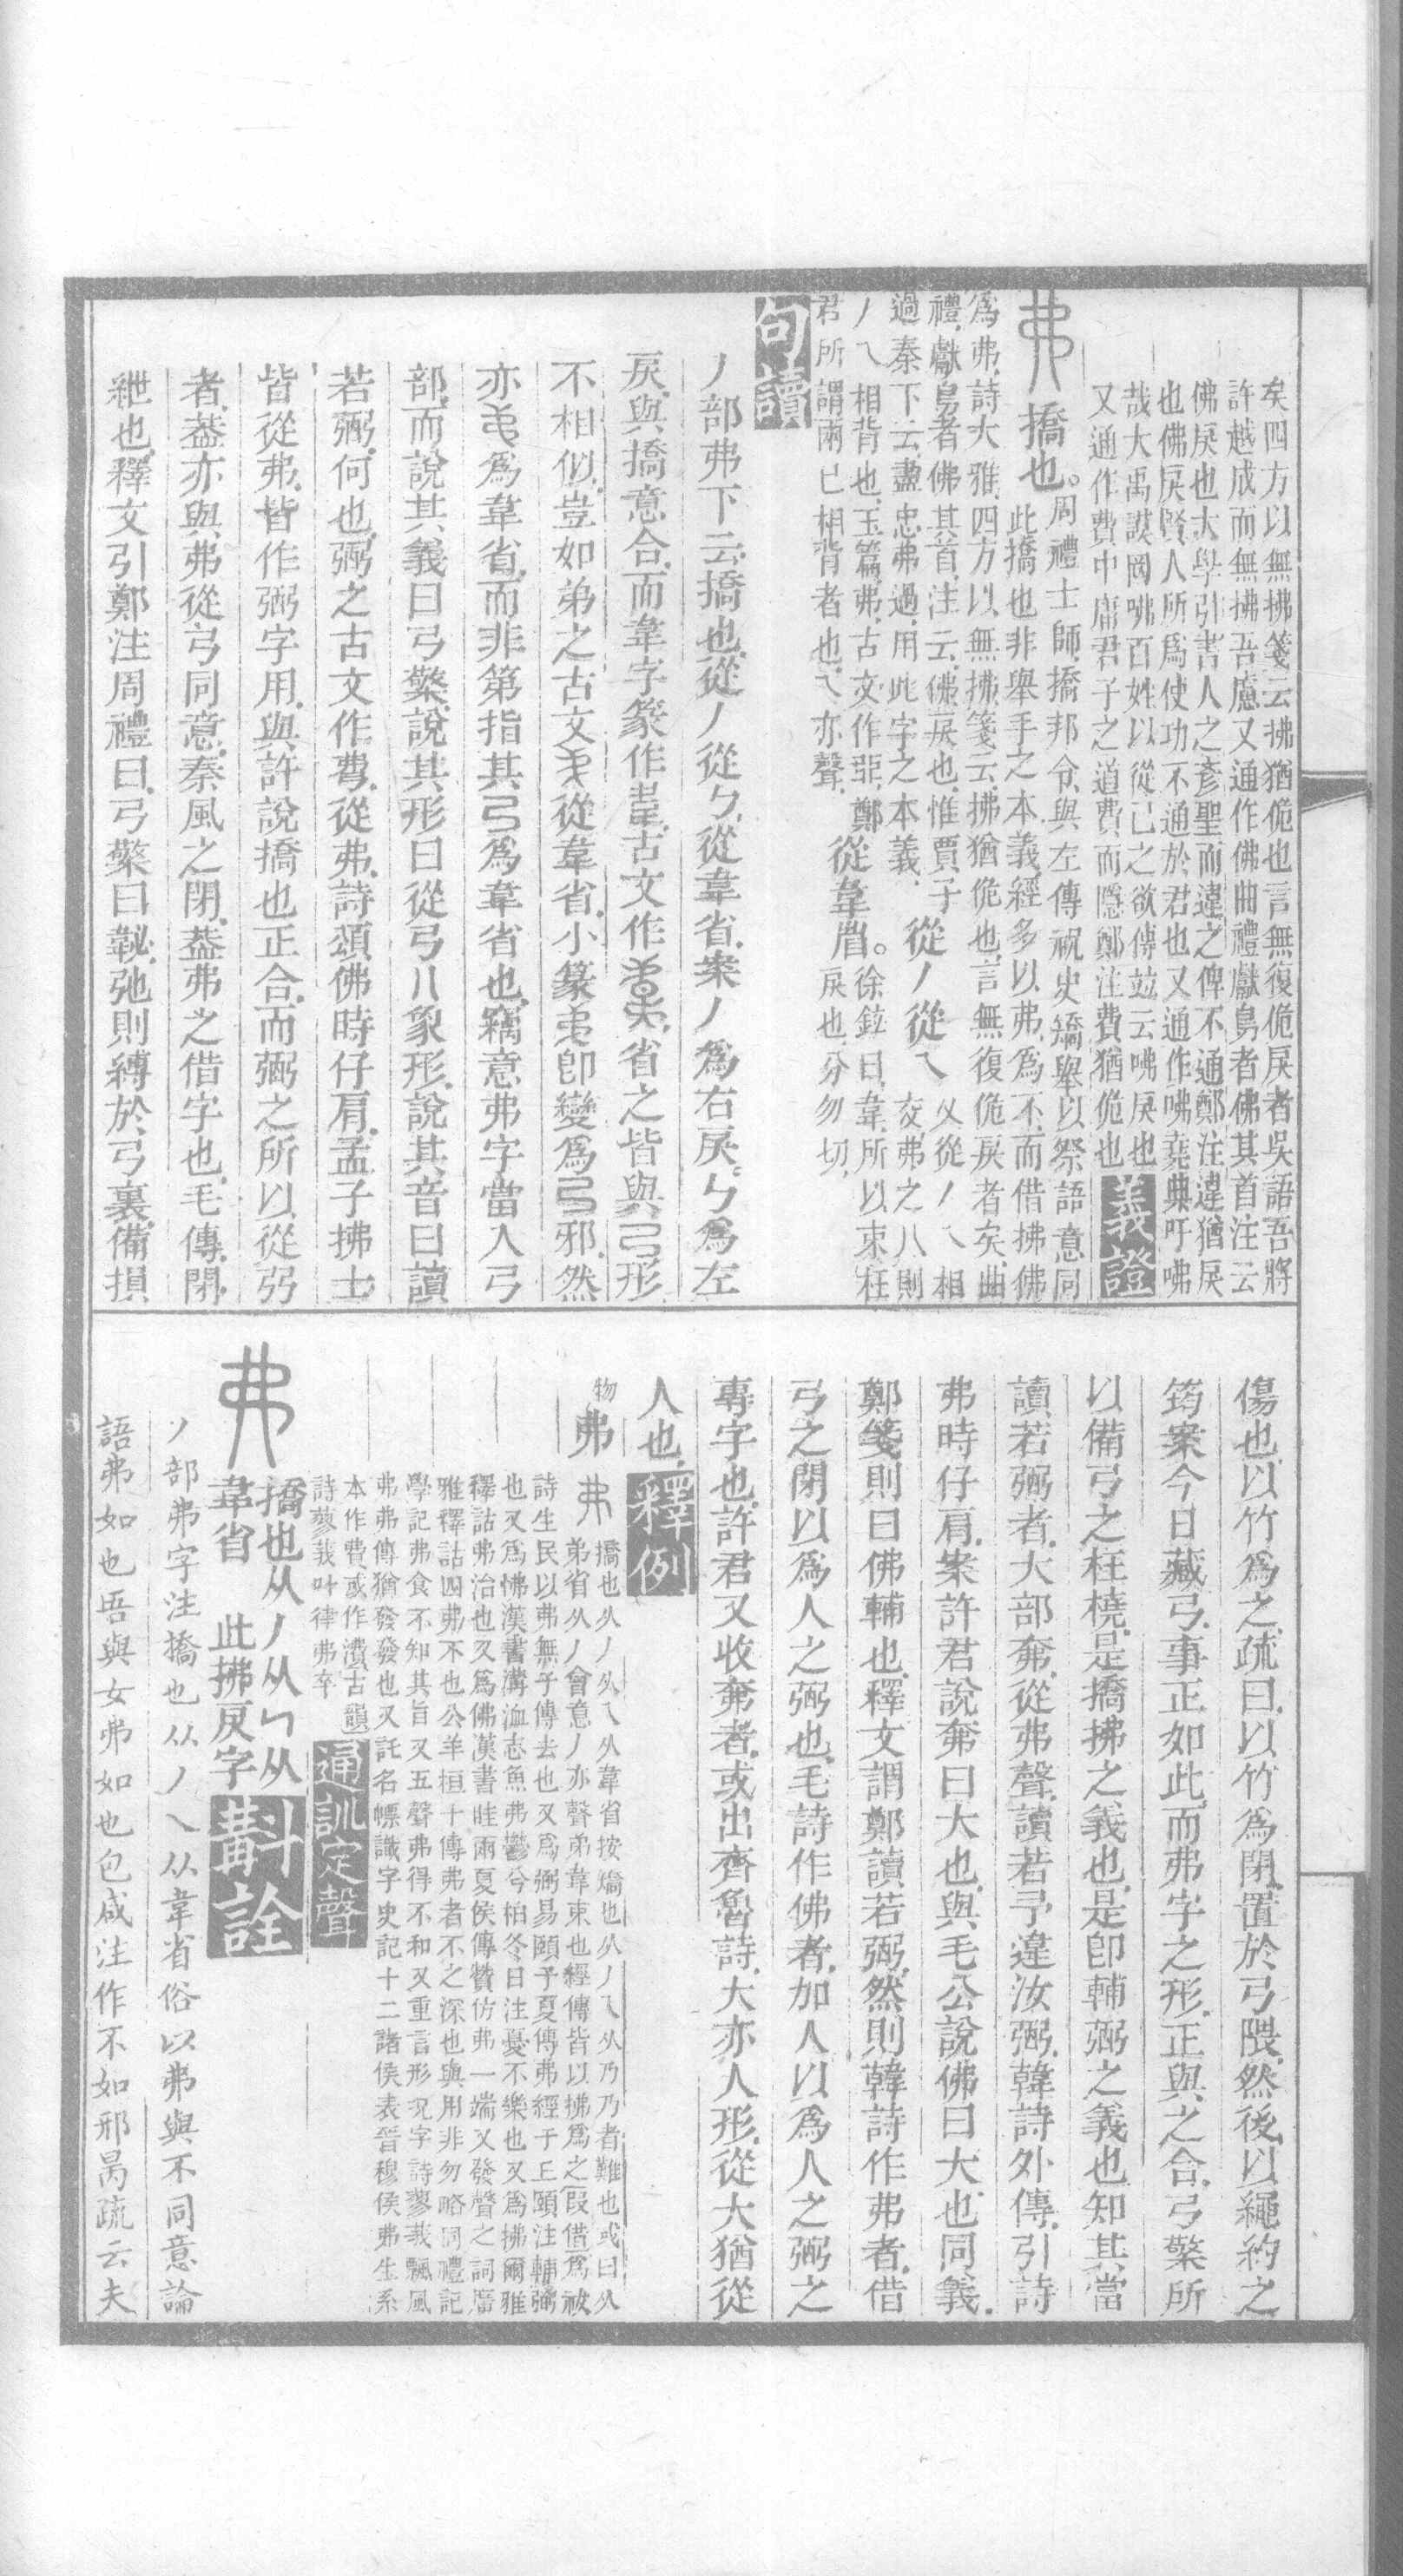 矣四方以無拂箋云拂猶佹也言無復佹戾者吳語吾將
許越成而無拂吾慮又通作佛曲禮獻鳥者佛其首注云
佛戾也大學引書人之彥聖而違之俾不通鄭注違猶戾
也佛戾賢人所爲使功不通於君也又通作咈堯典吁咈
哉大禹謨罔咈百姓以從己之欲傳竝云咈戾也
又通作費中庸君子之道費而隱鄭注費猶佹也 義證
撟也。周禮士師、撟邦令、與左傳祝史矯舉以祭語意同
此撟也非舉手之本義、經多以弗爲不、而借拂佛
爲弗、詩大雅、四方以無拂、箋云、拂猶佹也、言無復佹戾者矣、曲
禮、獻鳥者佛其首、注云、佛戾也、惟賈子 從丿從乀 乂從丿乀相
過秦下云、盡忠弗過、用此字之本義、 交、弗之八則
丿乀相背也、玉篇、弗、古文作亞、鄭 從韋省。徐鉉曰、韋、所以束枉
君所謂兩已相背者也、乀亦聲、 戾也、分勿切、
句讀
丿部弗下云、撟也、從丿從乀、從韋省、案丿爲右戾、乀爲左
戾、與撟意合、而韋字篆作、古文作、省之皆與弓形
不相似、豈如弟之古文從韋省、小篆卽變爲弓邪、然
亦爲韋省、而非第指其弓爲韋省也、竊意弗字當入弓
部、而說其義曰弓檠、說其形曰從弓八象形、說其音曰讀
若弼、何也、弼之古文作、從弗、詩頌佛時仔肩、孟子拂士、
皆從弗、皆作弼字用、與許說撟也正合、而弼之所以從弜
者、葢亦與弗從弓同意、秦風之閉、葢弗之借字也、毛傳、閉、
紲也、釋文引鄭注周禮曰、弓檠曰、弛則縛於弓裏、備損
傷也、以竹爲之、疏曰、以竹爲閉、置於弓隈、然後以繩約之
筠案今日藏弓、事正如此、而弗字之形、正與之合、弓檠所
以備弓之枉橈、是撟拂之義也、是卽輔弼之義也、知其當
讀若弼者、大部奰、從弗聲、讀若予違汝弼、韓詩外傳、引詩
弗時仔肩、案許君說奰曰大也、與毛公說佛曰大也同義、
鄭箋則曰佛輔也、釋文謂鄭讀若弼、然則韓詩作弗者、借
弓之閉以爲人之弼也、毛詩作佛者、加人以爲人之弼之
專字也、許君又收奰者、或出齊魯詩、大亦人形、從大猶從
人也、 釋例
物弗 撟也从丿从乀从韋省按矯也从丿乀从乃乃者難也或曰从
弟省从丿會意丿亦聲弟韋束也經傳皆以拂爲之〔叚借〕爲祓
詩生民以弗無子傳去也又爲弼易頤子夏傳弗經于丘頤注輔弼
也又爲怫漢書溝洫志魚弗鬱兮柏冬日注憂不樂也又爲拂爾雅
釋詁弗治也又爲佛漢書眭兩夏侯傳贊仿弗一端又發聲之詞廣
雅釋詁四弗不也公羊桓十傳弗者不之深也與用非勿略同禮記
學記弗食不知其旨又五聲弗得不和又重言形況字詩蓼莪飄風
弗弗傳猶發發也又託名幖識字史記十二諸侯表晉穆侯弗生系
本作費或作潰古韻
詩蓼莪叶律弗卒 通訓定聲
撟也从丿从乀从
韋省 此拂戾字 斠詮
丿部弗字注撟也从丿乀从韋省俗以弗與不同意論
語弗如也吾與女弗如也包咸注作不如邢昺疏云夫